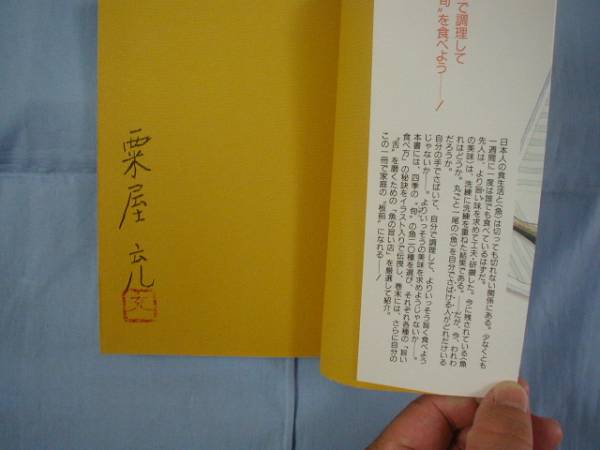 で調理して
旬"を食べよう——！
日本人の食生活と〈魚〉は切っても切れない関係にある。少なくとも
一週間に一度は誰でも食べているはずだ。
先人は、より旨い味を求めて工夫・研鑽した。今に残されている〈魚
の美味〉は、洗練に洗練を重ねた結果である。——だが、今、われわ
れはどうか。丸ごと一尾の〈魚〉を自分でさばける人がどれだけいる
だろうか。
自分の手でさばいて、自分で調理して、よりいっそう旨く食べよう
じゃないか——。よりいっそうの美味を求めようじゃないか——。
本書には、四季の"旬"の魚二〇種を選び、それぞれ各種の「旨い
食べ方」の秘訣をイラスト入りで伝授し、巻末には、さらに自分の
"舌"を磨くための「魚の旨い店」を厳選して紹介。
この一冊で家庭の"板前"になれる——！
粟屋 充